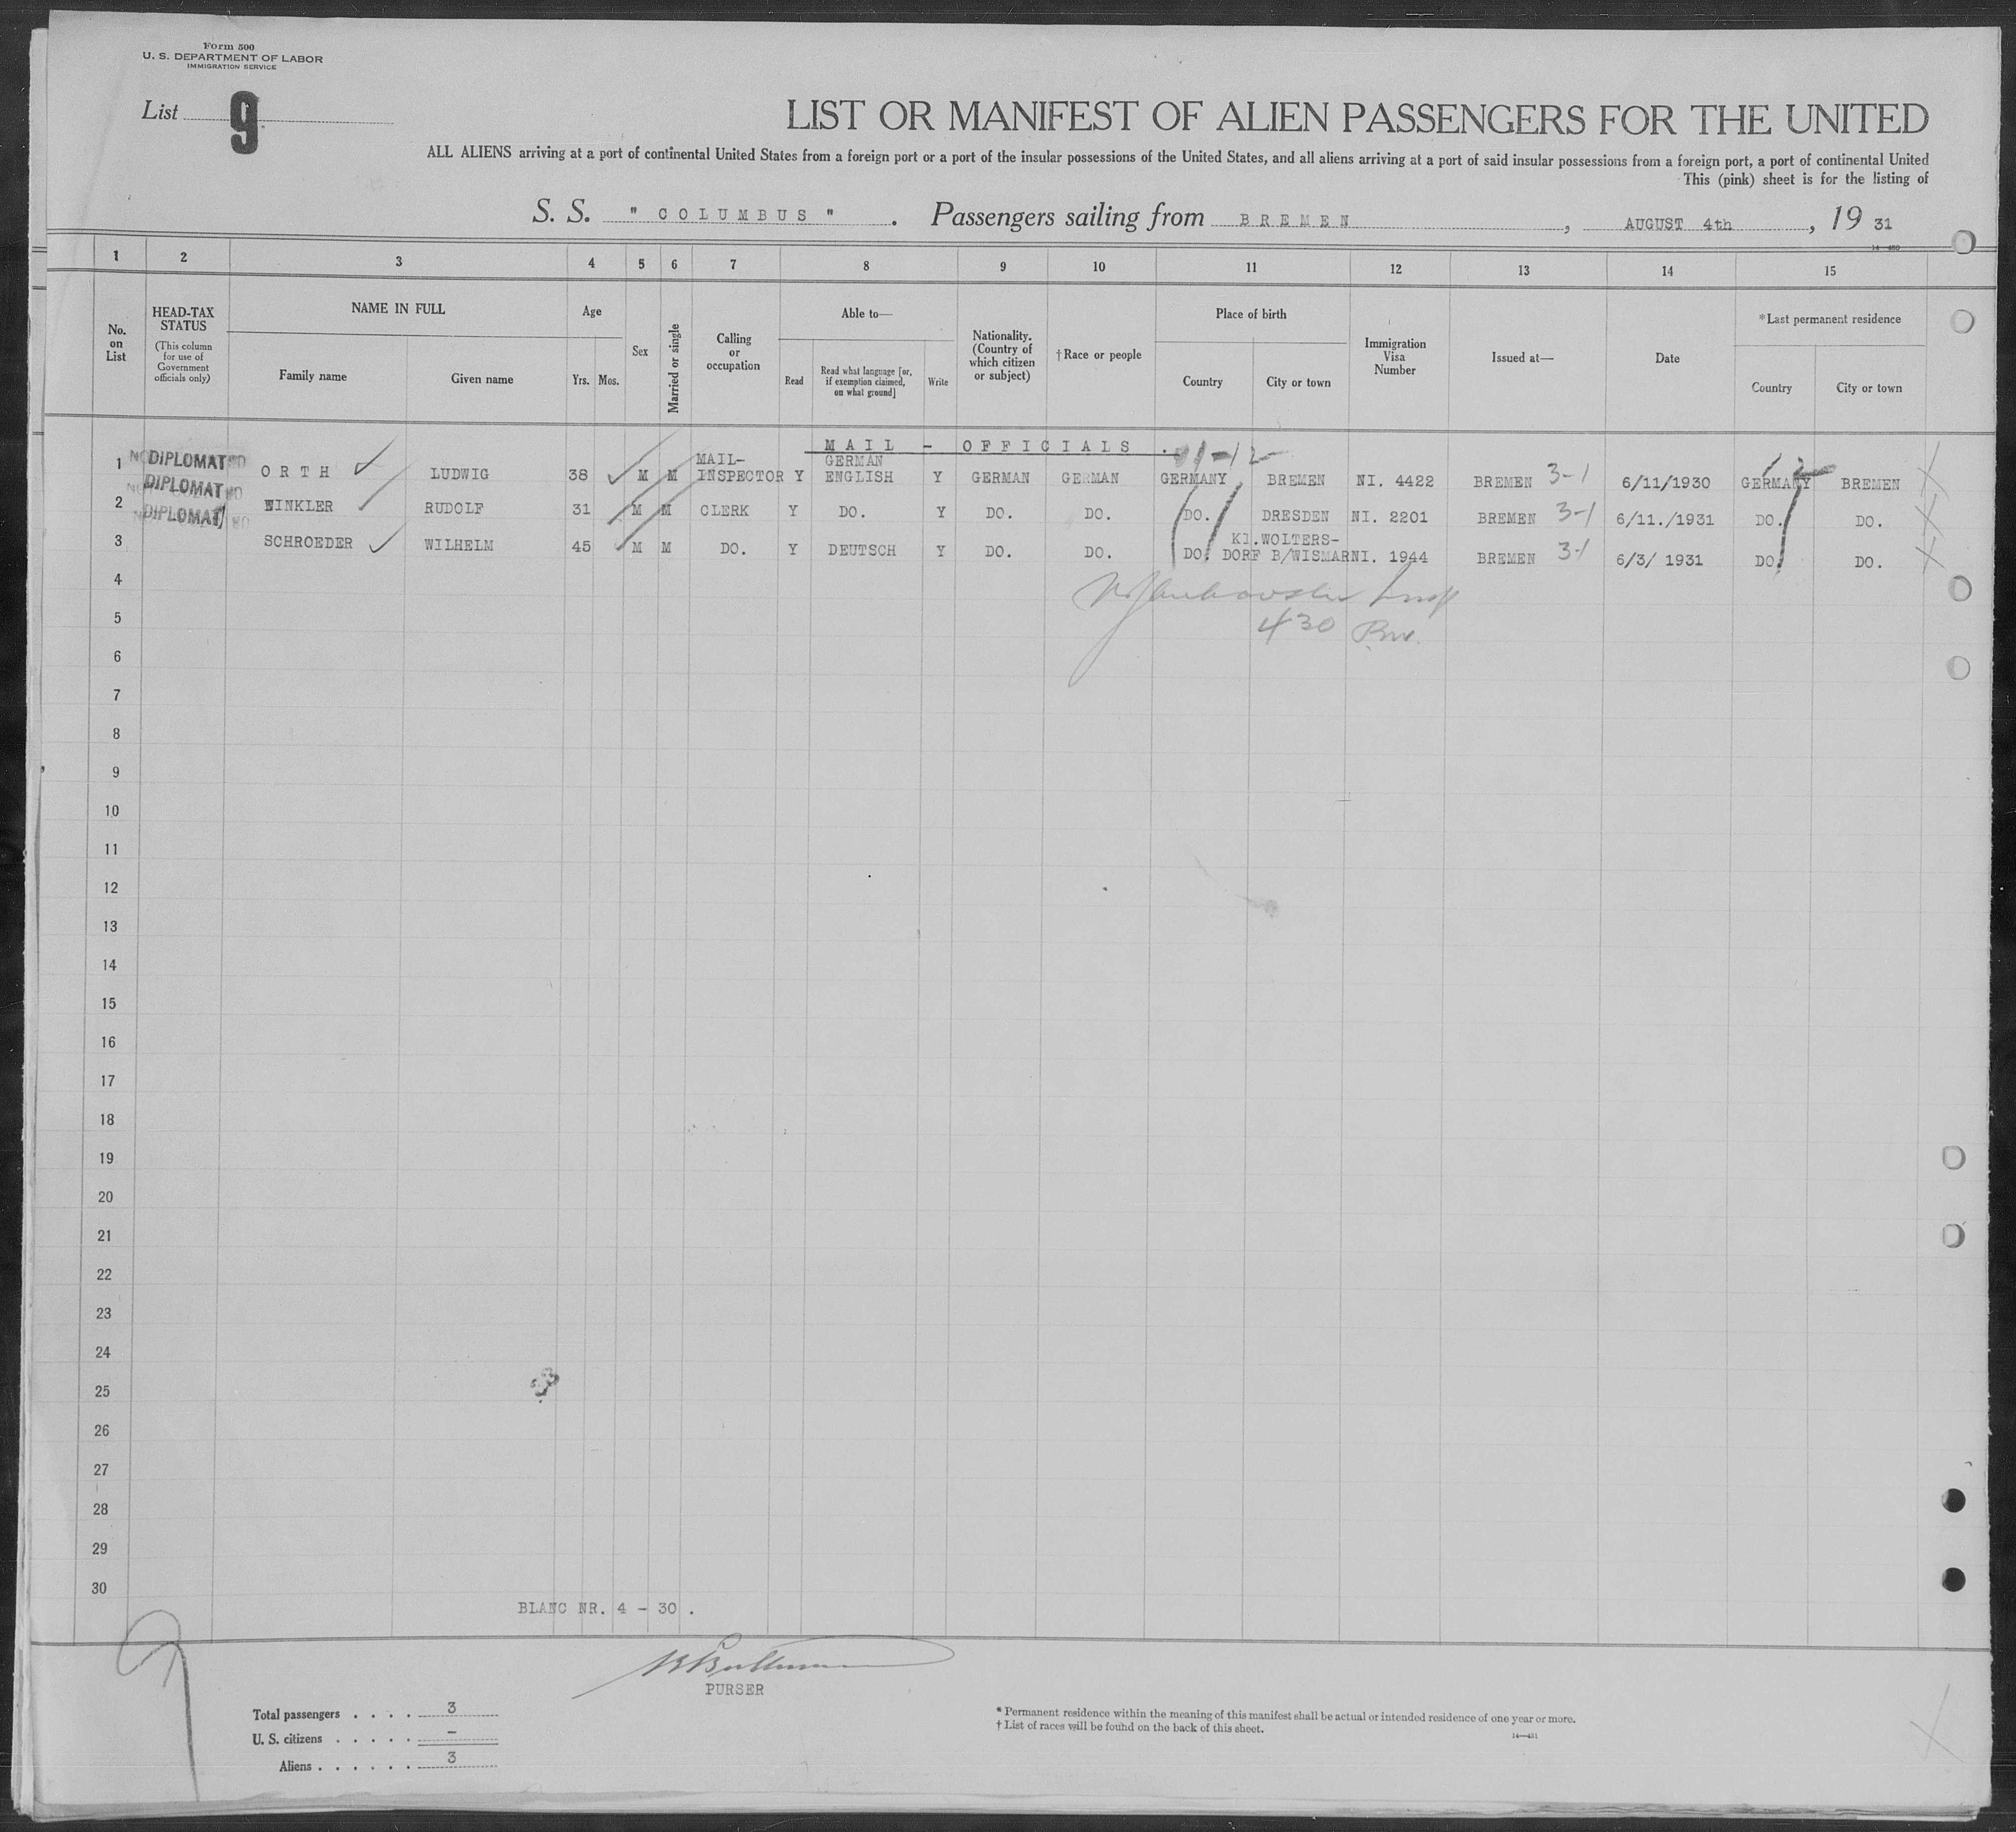 Form 500
U. S. DEPARTMENT OF LABOR
IMMIGRATION SERVICE
List 9
LIST OR MANIFEST OF ALIEN PASSENGERS FOR THE UNITED
ALL ALIENS arriving at a port of continental United States from a foreign port or a port of the insular possessions of the United States, and all aliens arriving at a port of said insular possessions from a foreign port, a port of continental United
This (pink) sheet is for the listing of
S. S. "COLUMBUS". Passengers sailing from BREMEN, AUGUST 4th, 19 31
14—480
1 2 3 4 5 6 7 8 9 10 11 12 13 14 15
No. on List
HEAD-TAX STATUS
(This column for use of Government officials only)
NAME IN FULL
Family name Given name
Age
Yrs. Mos.
Sex
Married or single
Calling or occupation
Able to—
Read
Read what language [or, if exemption claimed, on what ground]
Write
Nationality. (Country of which citizen or subject)
†Race or people
Place of birth
Country City or town
Immigration Visa Number
Issued at—
Date
*Last permanent residence
Country City or town
MAIL - OFFICIALS.
1 DIPLOMAT ORTH LUDWIG 38 M M MAIL-INSPECTOR Y GERMAN ENGLISH Y GERMAN GERMAN GERMANY BREMEN NI. 4422 BREMEN 3-1 6/11/1930 GERMANY BREMEN
2 DIPLOMAT WINKLER RUDOLF 31 M M CLERK Y DO. Y DO. DO. DO. DRESDEN NI. 2201 BREMEN 3-1 6/11./1931 DO. DO.
3 DIPLOMAT SCHROEDER WILHELM 45 M M DO. Y DEUTSCH Y DO. DO. DO. Kl.WOLTERS-DORF B/WISMAR NI. 1944 BREMEN 3-1 6/3/ 1931 DO. DO.
4
430
5
6
7
8
9
10
11
12
13
14
15
16
17
18
19
20
21
22
23
24
25
26
27
28
29
30
BLANC NR. 4 - 30 .
PURSER
Total passengers . . . . 3
U. S. citizens . . . . . —
Aliens . . . . . . 3
* Permanent residence within the meaning of this manifest shall be actual or intended residence of one year or more.
† List of races will be found on the back of this sheet.
14—481